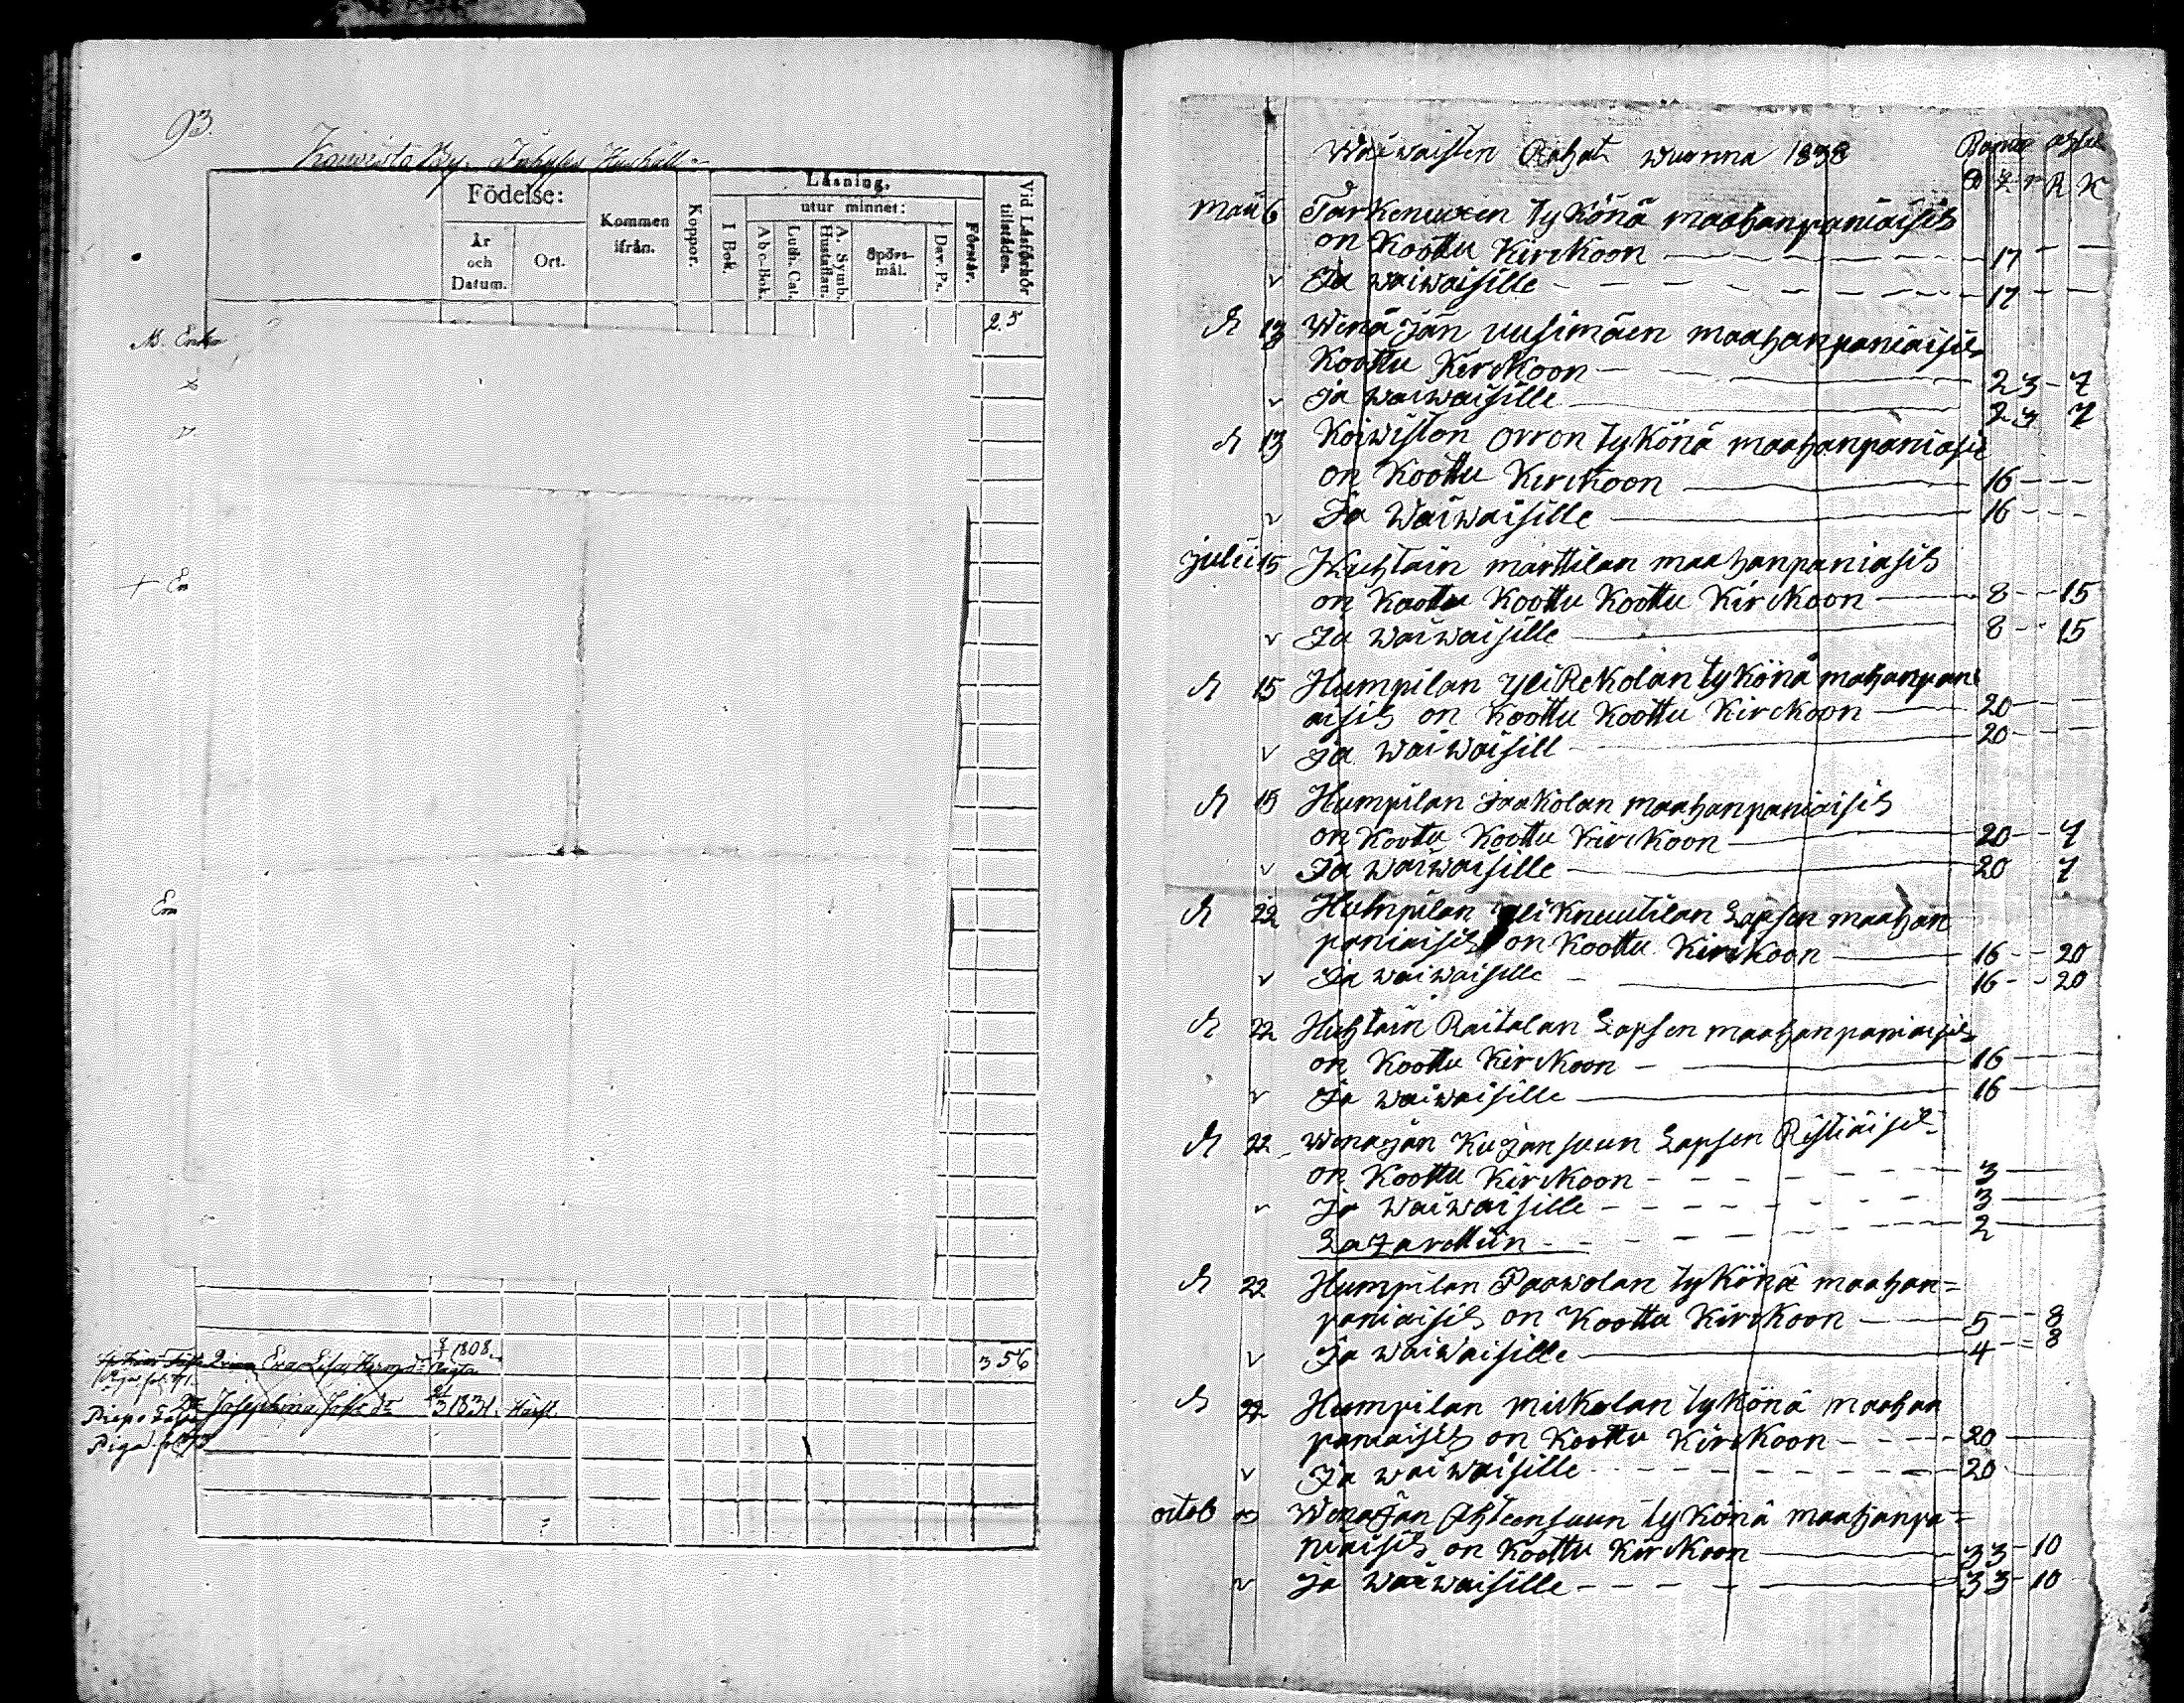 93.
Koivisto By.
Födelse:
År och Datum.
Ort.
Kommen ifrån.
Koppor.
Läsning.
I Bok.
utur minnet:
Abc-Bok.
Luth. Cat.
A. Symb. Hustaflan.
Spörs-mål.
Dav. Ps.
Förstår.
Vid Läsförhör tillstädes.
2.5
Eva Lisa 1808. 356
Josephina 1831.
Waiwaisten Rahat wuonna 1838
R K
Maii 6 tykönä maahanpaniaisis
on Koottu Kirckoon 17
v Ja waiwaisille 17
13 Wenäjän uusimäen maahanpaniaisis
Koottu Kirckoon 23 - 7
v ja waiwaisille 23 7
13 Koiwiston orron tykönä maahanpaniasis
on Koottu Kirckoon 16
v Ja Waiwaisille 16
Julii 15 Huhtain marttilan maahanpaniasis
on Koottu Koottu Koottu Kirckoon 8 - - 15
v Ja waiwaisille 8 - - 15
15 Humpilan yliRekolan tykönä mahanpani
aisis on Koottu Koottu Kirckoon 20
v Ja waiwaisill 20
15 Humpilan Jaakolan maahanpaniaisis
on Koottu Koottu Kirckoon 20 - - 7
v Ja waiwaisille 20 7
22 Humpilan yliKnuutilan Lapsen maahan
paniaisis on Koottu Kirckoon 16 - - 20
v Ja waiwaisille 16 - - 20
22 Huhtain Raitalan Lapsen maahanpaniaisis
on Koottu Kirckoon 16
v Ja waiwaisille 16
22 Wenäjän Kujansuun Lapsen Ristiäisis
on Koottu Kirckoon 3
v Ja waiwaisille 3
Lazarettiin 2
22 Humpilan Paawolan tykönä maahan=
paniaisis on Koottu Kirckoon 5 - - 8
v Ja waiwaisille 4 - - 8
22 Humpilan mickolan tykönä maahan
paniaisis on Koottu Kirckoon 20
v Ja waiwaisille 20
octob Wenäjän Ahteensuun tykönä maahanpa=
niaisis on Koottu Kirckoon 33 - 10
v Ja waiwaisille 33 - 10